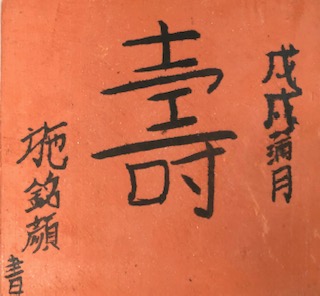 戊戌月
壽
施銘顏書